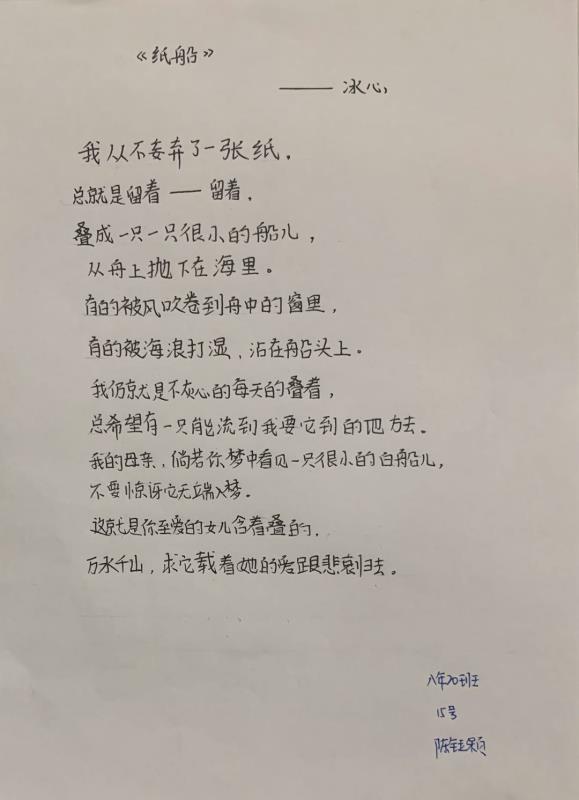 《纸船》
—— 冰心
我从不妄弃了一张纸，
总就是留着——留着，
叠成一只一只很小的船儿，
从舟上抛下在海里。
有的被风吹卷到舟中的窗里，
有的被海浪打湿，沾在船头上。
我仍就是不灰心的每天的叠着，
总希望有一只能流到我要它到的地方去。
我的母亲，倘若你梦中看见一只很小的白船儿，
不要惊讶它无端入梦。
这就是你至爱的女儿含着叠的，
万水千山，求它载着她的爱跟悲哀归去。
八年20班
15号
陈钰颖